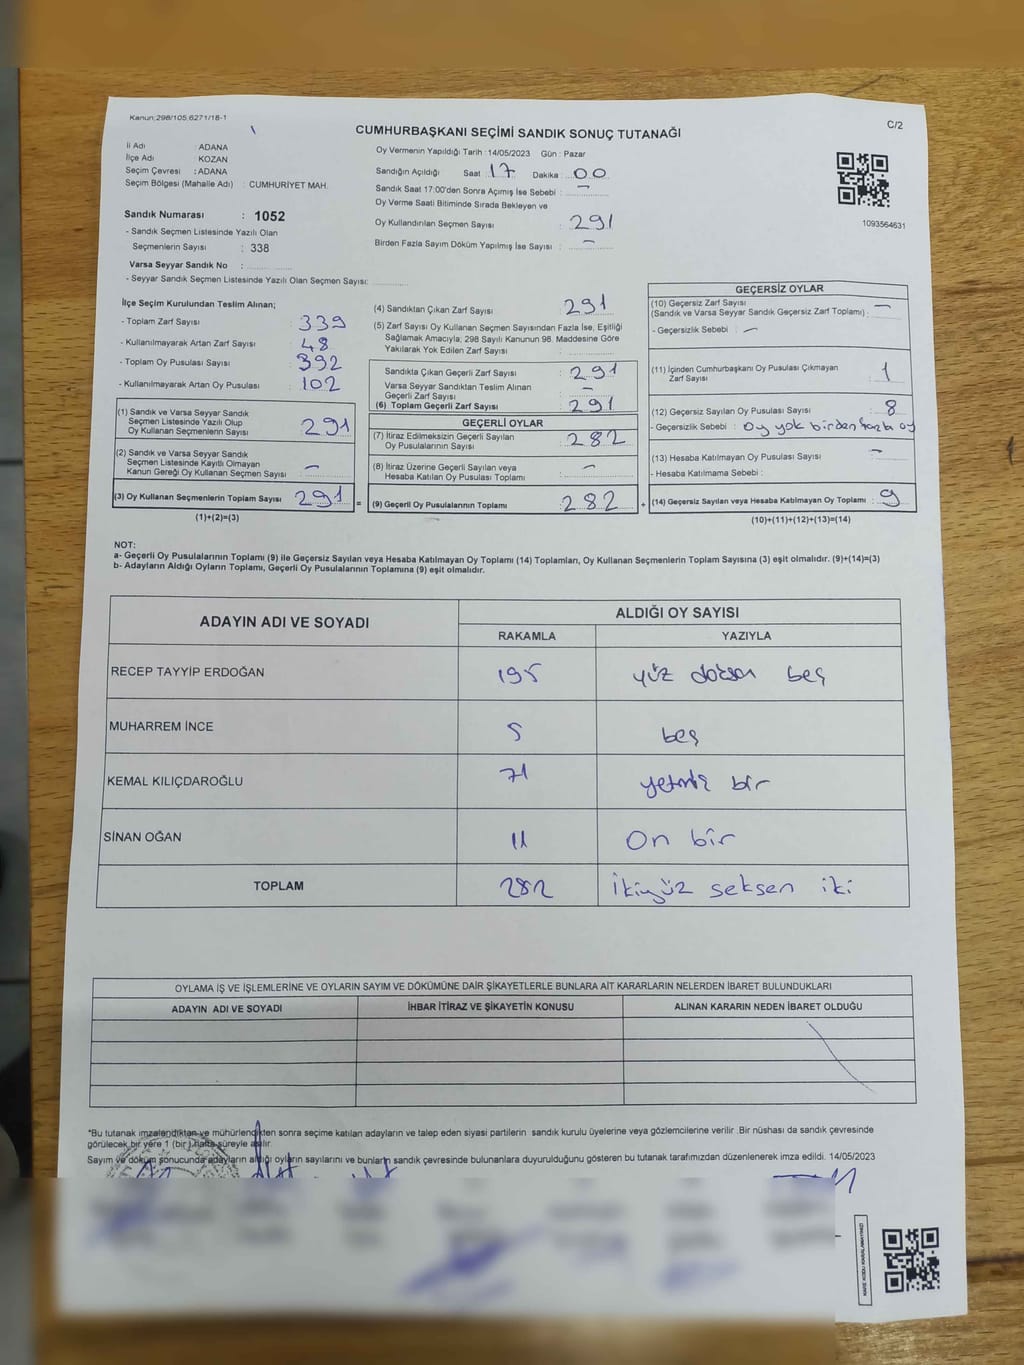 Kanun:298/105,6271/18-1
C/2
CUMHURBAŞKANI SEÇİMİ SANDIK SONUÇ TUTANAĞI
İl Adı ADANA
İlçe Adı KOZAN
Seçim Çevresi : ADANA
Seçim Bölgesi (Mahalle Adı) : CUMHURİYET MAH.
Sandık Numarası : 1052
- Sandık Seçmen Listesinde Yazılı Olan
Seçmenlerin Sayısı : 338
Varsa Seyyar Sandık No :
- Seyyar Sandık Seçmen Listesinde Yazılı Olan Seçmen Sayısı:
Oy Vermenin Yapıldığı Tarih :14/05/2023 Gün : Pazar
Sandığın Açıldığı Saat : 17 Dakika : 00
Sandık Saat 17:00'den Sonra Açımış İse Sebebi : -
Oy Verme Saati Bitiminde Sırada Bekleyen ve
Oy Kullandırılan Seçmen Sayısı : 291
Birden Fazla Sayım Döküm Yapılmış İse Sayısı : -
1093564631
İlçe Seçim Kurulundan Teslim Alınan;
- Toplam Zarf Sayısı : 339
- Kullanılmayarak Artan Zarf Sayısı : 48
- Toplam Oy Pusulası Sayısı : 392
- Kullanılmayarak Artan Oy Pusulası : 102
(1) Sandık ve Varsa Seyyar Sandık
Seçmen Listesinde Yazılı Olup
Oy Kullanan Seçmenlerin Sayısı : 291
(2) Sandık ve Varsa Seyyar Sandık
Seçmen Listesinde Kayıtlı Olmayan
Kanun Gereği Oy Kullanan Seçmen Sayısı : -
(3) Oy Kullanan Seçmenlerin Toplam Sayısı : 291 =
(1)+(2)=(3)
(4) Sandıktan Çıkan Zarf Sayısı : 291
(5) Zarf Sayısı Oy Kullanan Seçmen Sayısından Fazla İse, Eşitliği
Sağlamak Amacıyla; 298 Sayılı Kanunun 98. Maddesine Göre
Yakılarak Yok Edilen Zarf Sayısı :
Sandıkta Çıkan Geçerli Zarf Sayısı : 291
Varsa Seyyar Sandıktan Teslim Alınan
Geçerli Zarf Sayısı : -
(6) Toplam Geçerli Zarf Sayısı : 291
GEÇERLİ OYLAR
(7) İtiraz Edilmeksizin Geçerli Sayılan
Oy Pusulalarının Sayısı : 282
(8) İtiraz Üzerine Geçerli Sayılan veya
Hesaba Katılan Oy Pusulası Toplamı : -
(9) Geçerli Oy Pusulalarının Toplamı : 282 +
GEÇERSİZ OYLAR
(10) Geçersiz Zarf Sayısı
(Sandık ve Varsa Seyyar Sandık Geçersiz Zarf Toplamı) : -
- Geçersizlik Sebebi : -
(11) İçinden Cumhurbaşkanı Oy Pusulası Çıkmayan
Zarf Sayısı : 1
(12) Geçersiz Sayılan Oy Pusulası Sayısı : 8
- Geçersizlik Sebebi : Oy yok birden fazla oy
(13) Hesaba Katılmayan Oy Pusulası Sayısı : -
- Hesaba Katılmama Sebebi :
(14) Geçersiz Sayılan veya Hesaba Katılmayan Oy Toplamı : 9
(10)+(11)+(12)+(13)=(14)
NOT:
a- Geçerli Oy Pusulalarının Toplamı (9) ile Geçersiz Sayılan veya Hesaba Katılmayan Oy Toplamı (14) Toplamları, Oy Kullanan Seçmenlerin Toplam Sayısına (3) eşit olmalıdır. (9)+(14)=(3)
b- Adayların Aldığı Oyların Toplamı, Geçerli Oy Pusulalarının Toplamına (9) eşit olmalıdır.
ADAYIN ADI VE SOYADI
ALDIĞI OY SAYISI
RAKAMLA YAZIYLA
RECEP TAYYİP ERDOĞAN 195 yüz doksan beş
MUHARREM İNCE 5 beş
KEMAL KILIÇDAROĞLU 71 yetmiş bir
SİNAN OĞAN 11 On bir
TOPLAM 282 İkiyüz seksen iki
OYLAMA İŞ VE İŞLEMLERİNE VE OYLARIN SAYIM VE DÖKÜMÜNE DAİR ŞİKAYETLERLE BUNLARA AİT KARARLARIN NELERDEN İBARET BULUNDUKLARI
ADAYIN ADI VE SOYADI İHBAR İTİRAZ VE ŞİKAYETİN KONUSU ALINAN KARARIN NEDEN İBARET OLDUĞU
*Bu tutanak imzalendikten ve mühürlendikten sonra seçime katılan adayların ve talep eden siyasi partilerin sandık kurulu üyelerine veya gözlemcilerine verilir .Bir nüshası da sandık çevresinde
görülecek bir yere 1 (bir ) hafta süreyle asılır.
Sayım ve döküm sonucunda adayların aldığı oyların sayılarını ve bunların sandık çevresinde bulunanlara duyurulduğunu gösteren bu tutanak tarafımızdan düzenlenerek imza edildi. 14/05/2023
KARE KODU KARALAMAYINIZ!